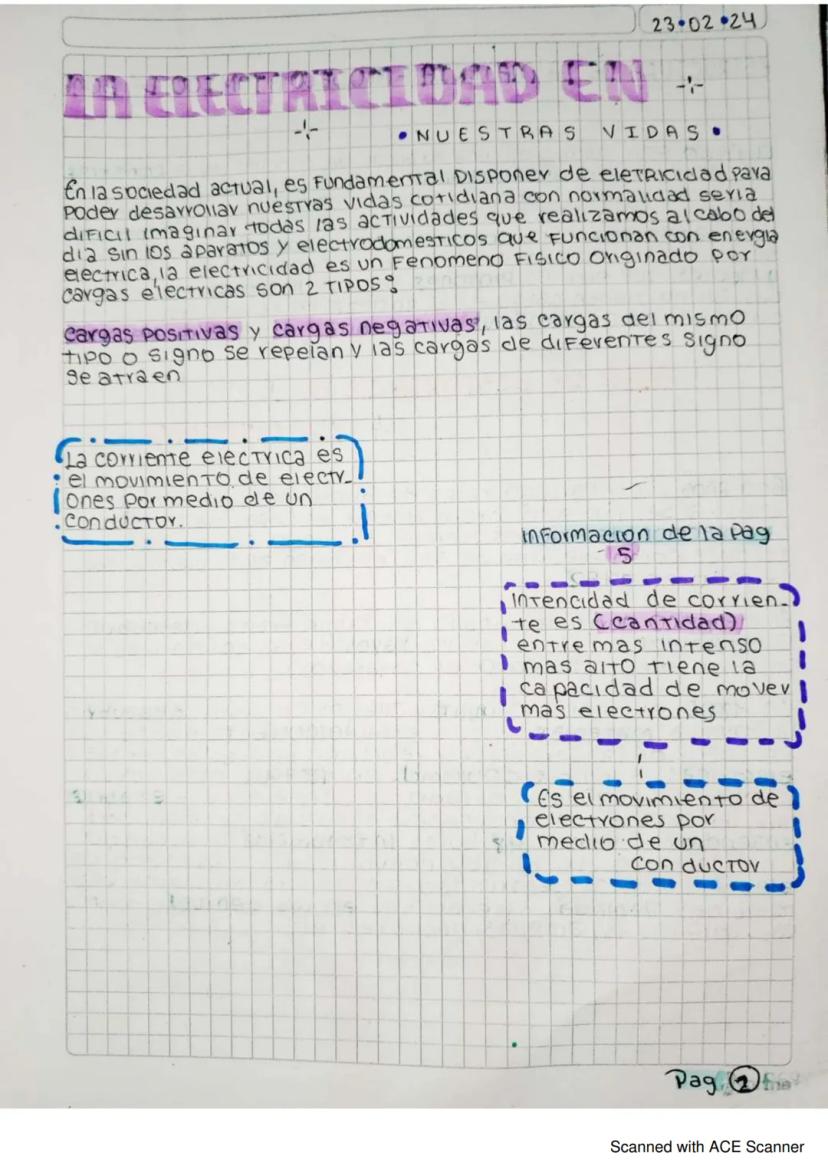 23•02•24
LA ELECTRICIDAD EN
•NUESTRAS VIDAS•
En la sociedad actual, es Fundamental Disponer de eletricidad para
Poder desarrollar nuestras vidas cotidiana con normalidad seria
diFicil imaginar todas las actividades que realizamos al cabo del
dia sin los aparatos y electrodomesticos que Funcionan con energia
electrica, la electricidad es un Fenomeno Fisico originado por
cargas electricas son 2 TIPOS:
cargas positivas y cargas negativas, las cargas del mismo
tipo o signo se repelan y las cargas de diferentes signo
se atraen
La corriente electrica es
el movimiento de electr-
ones por medio de un
conductor.
informacion de la Pag
5
Intencidad de corrien-
te es (cantidad)
entre mas intenso
mas alto tiene la
capacidad de mover
mas electrones
Es el movimiento de
electrones por
medio de un
conductor
Pag 2
Scanned with ACE Scanner